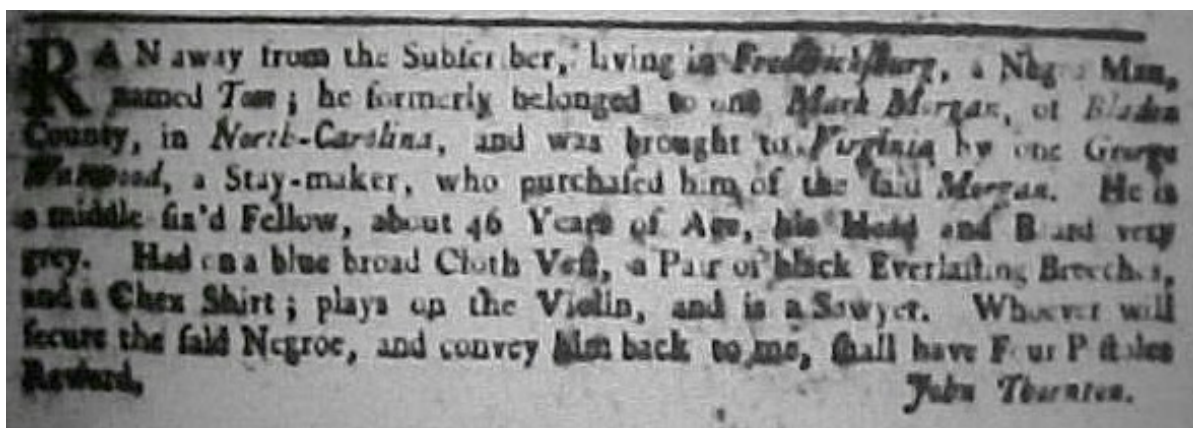 RAN away from the Subscriber, living in Fredericksburg, a Negro Man,
named Tom; he formerly belonged to one Mark Morgan, of Bladen
County, in North-Carolina, and was brought to Virginia by one George
, a Stay-maker, who purchased him of the said Morgan. He is
a middle siz'd Fellow, about 46 Years of Age, his Head and Beard very
grey. Had on a blue broad Cloth Vest, a Pair of black Everlasting Breeches,
and a Chex Shirt; plays on the Violin, and is a Sawyer. Whoever will
secure the said Negroe, and convey him back to me, shall have Four Pistoles
Reward,
John Thornton.